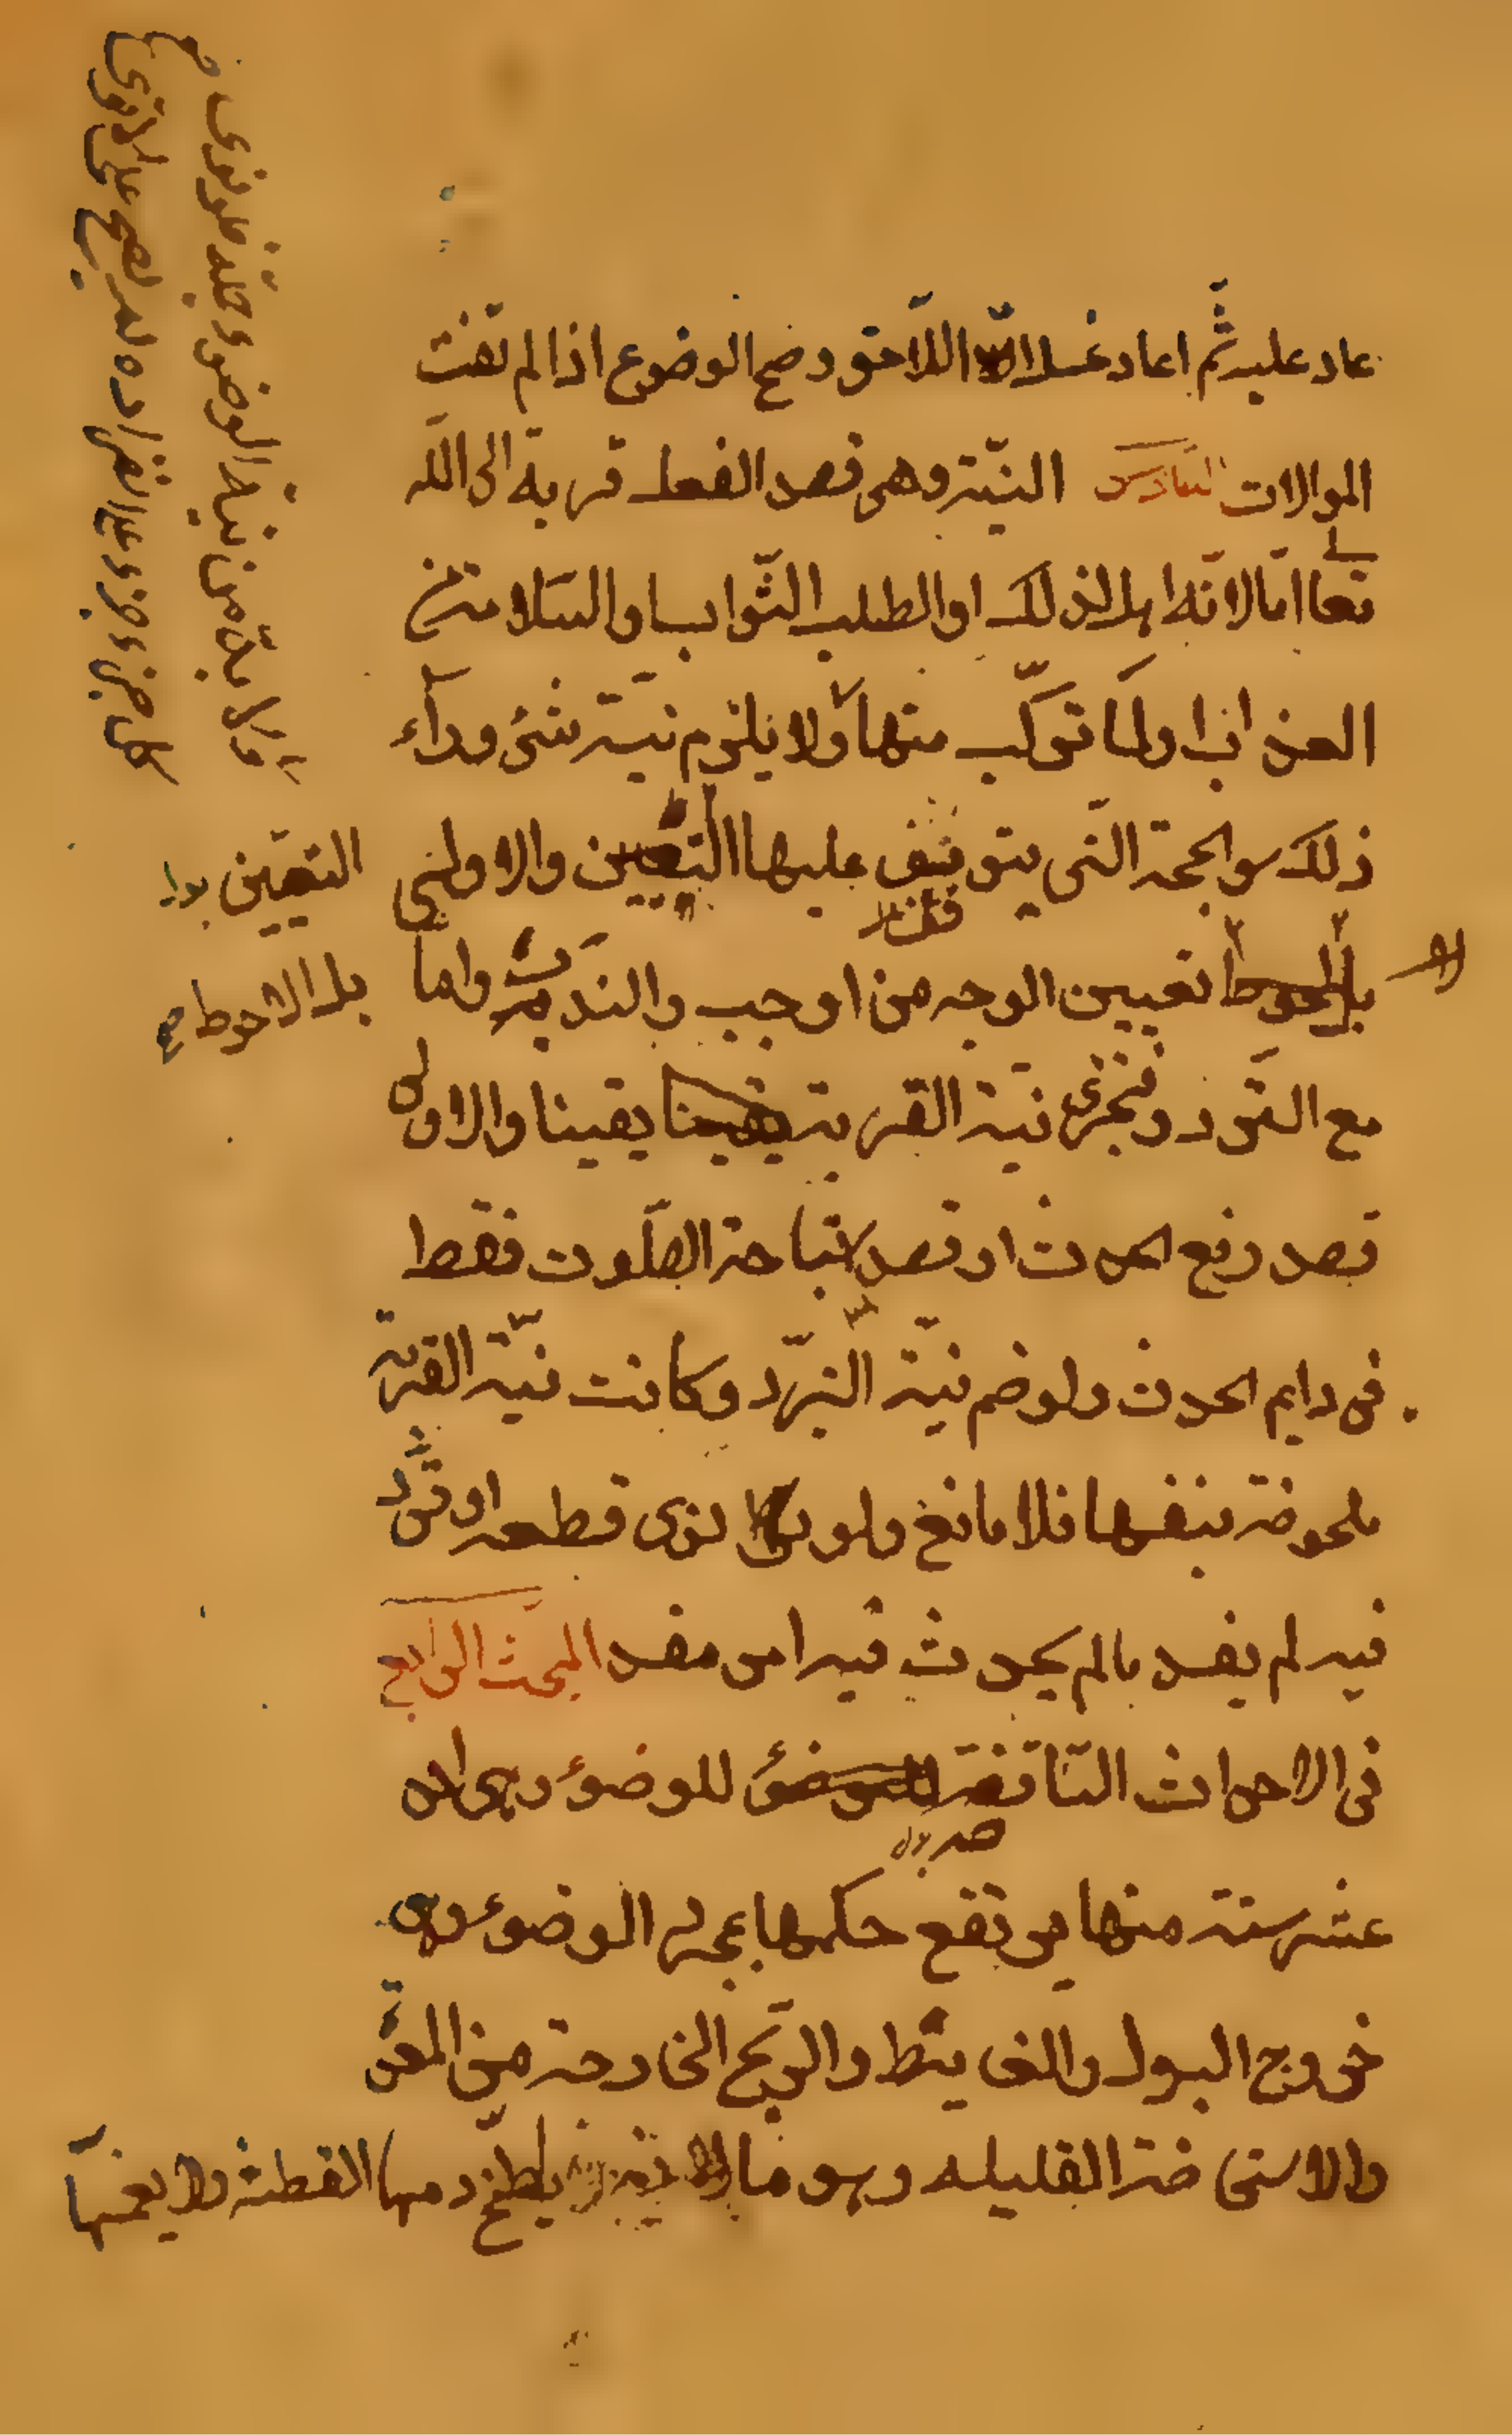 عاد عليه ثم اعاد غسل اللاحق وصح الوضوء اذا لم تفت
الموالات السادس النيّة وهي قصد الفعل قربة الى الله
تعالى امّا لانّه اهل لذلك او لطلب الثّواب والسّلامة من
العذاب او لما تركّب منهما ولا يلزم نيّة شئ وراء
ذلك سوا لجهة التى يتوقف عليها التعيين والاولى
بل تعيين الوجه من اوجب والندب واما
مع التردد فتجزي نيّة القربة يقينا والاولى
قصد رفع الحدث او قصد استباحة الصّلوت فقط
فى دايم الحدث ولو ضم نيّة التبرّد وكانت نيّة القربة
ملحوضة بنفسها فلا مانع ولو نوى قطعه او تردّد
فيه لم يفسد مالم يحدث فيه امر مفسد المبحث الرابع
فى الاحداث النّاقضة للوضوء وهى احد
عشر ستة منها يرتفع حكمها بمجرد الوضوء وهى
خروج البول والغايط والرّيح الخارجة من المعدة
والاستحاضة القليله وهو ما يلطّخ دمها القطنة ولا يغمسها
التعيّن
بل الاحوط
ولا بدّ من نيّة الوضوء جملة فلو نوى
كل جزء جزء على انفراده لم يصح على الاقوى